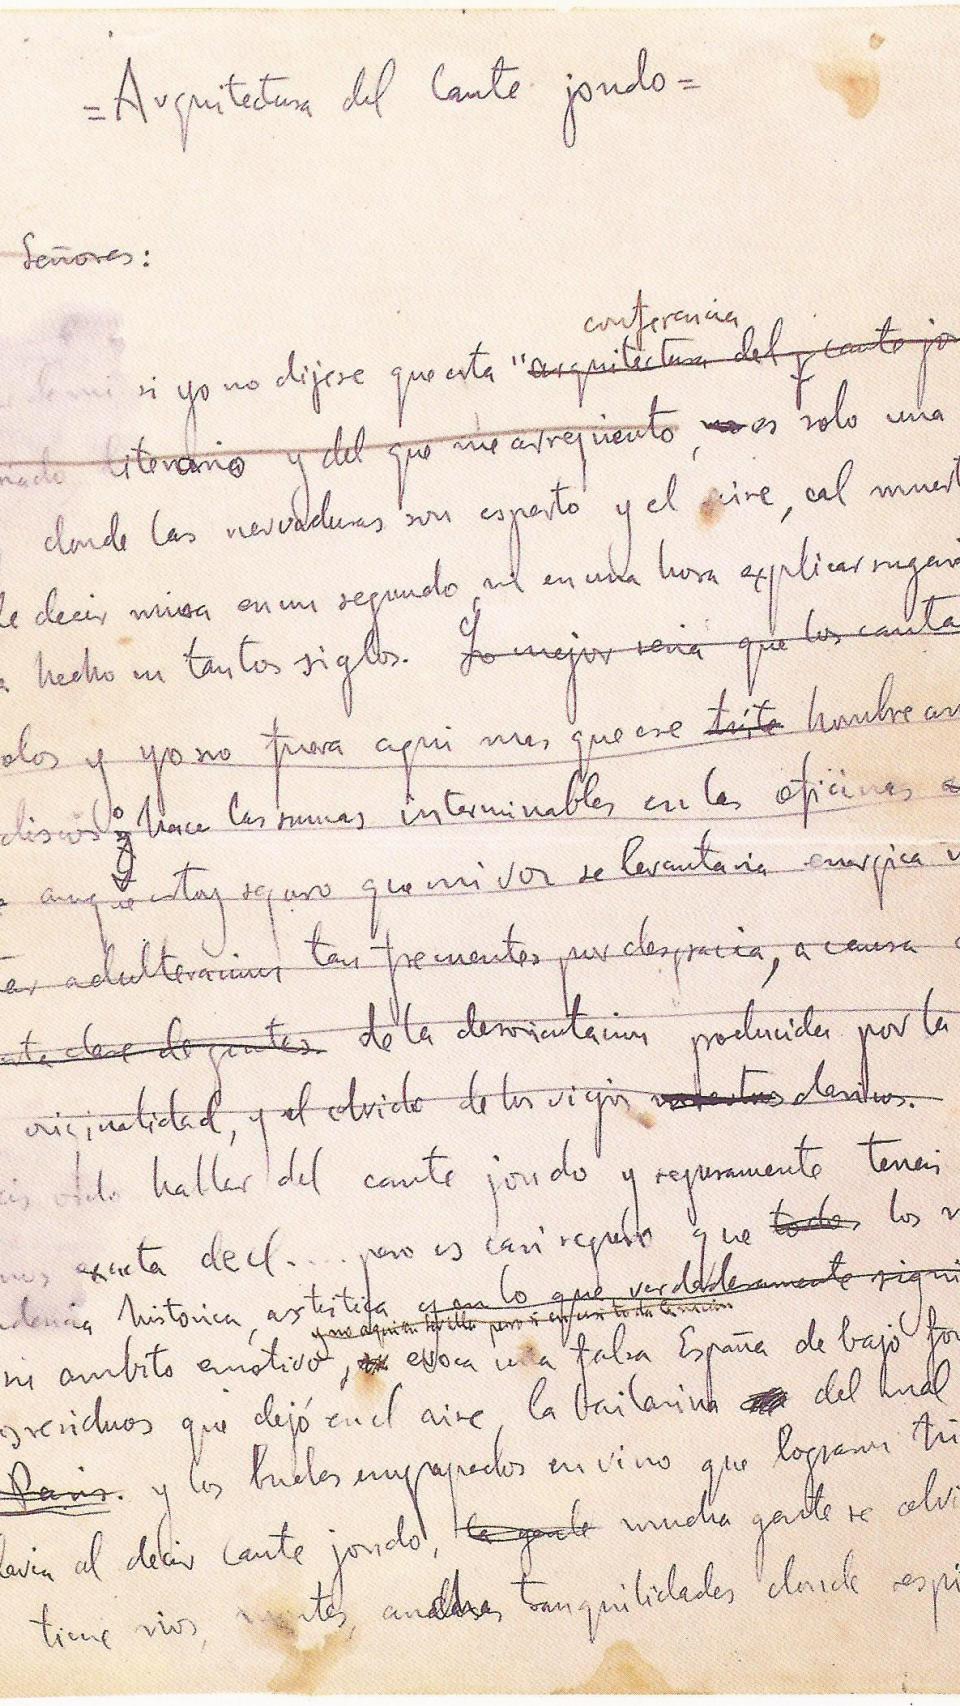 = Arquitectura del Cante jondo =
Señores:
conferencia
si yo no dijese que esta "arquitectura del cante jo
literario y del que me arrepiento, no es solo una
donde las nervaduras son esparto y el aire, cal muert
decir misa en un segundo ni en una hora explicar
hecho en tantos siglos. Lo mejor seria que los canta
olos y yo no fuera aqui mas que ese triste hombre
discos y hace las sumas interminables en las oficinas
aunque estoy seguro que mi voz se levantaria energica
adulteracions tan frecuentes por desgracia, a causa
clase de gentes. de la desorientacion producida por la
originalidad, y el olvido de los viejos maestros clasicos.
hallar del cante jondo y seguramente teneis
exacta de el .... pero es casi seguro que todos los
historica, astetica y en lo que verdaderamente signi
y no aqui en Sevilla pero si en casi toda la
ni ambito emotivo, evoca una falsa España de bajo fon
residuos que dejó en el aire, la bailarina del mal
Paris. y los bucles empapados en vino que logran
al decir cante jondo, la gente mucha gente se olvi
tiene rios, montes, anchas tranquilidades donde